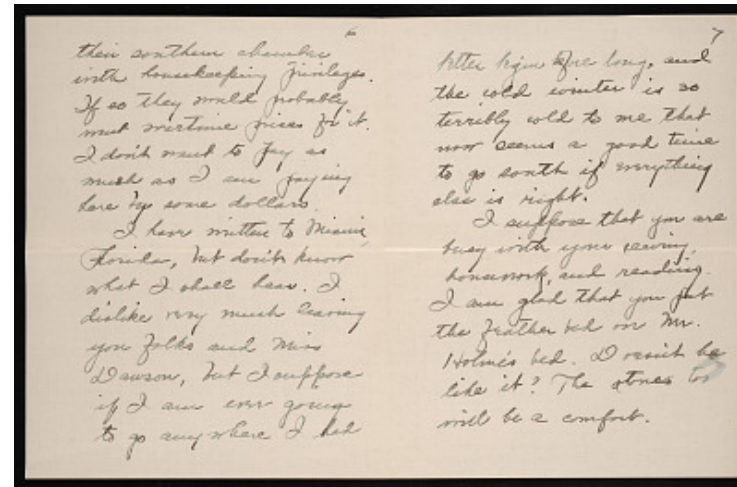 6
their southern chamber
with housekeeping privileges.
If so they would probably
want wartime prices for it.
I don't want to pay as
much as I am paying
here by some dollars.
I have written to Miami,
Florida, but don't know
what I shall hear. I
dislike very much leaving
you folks and Miss
Dawson, but I suppose
if I am ever going
to go anywhere I had
7
better begin before long, and
the cold winter is so
terribly cold to me that
now seems a good time
to go south if everything
else is right.
I suppose that you are
busy with your sewing,
housework, and reading.
I am glad that you put
the feather bed on Mr.
Holmes bed. Doesn't he
like it? The stones too
will be a comfort.